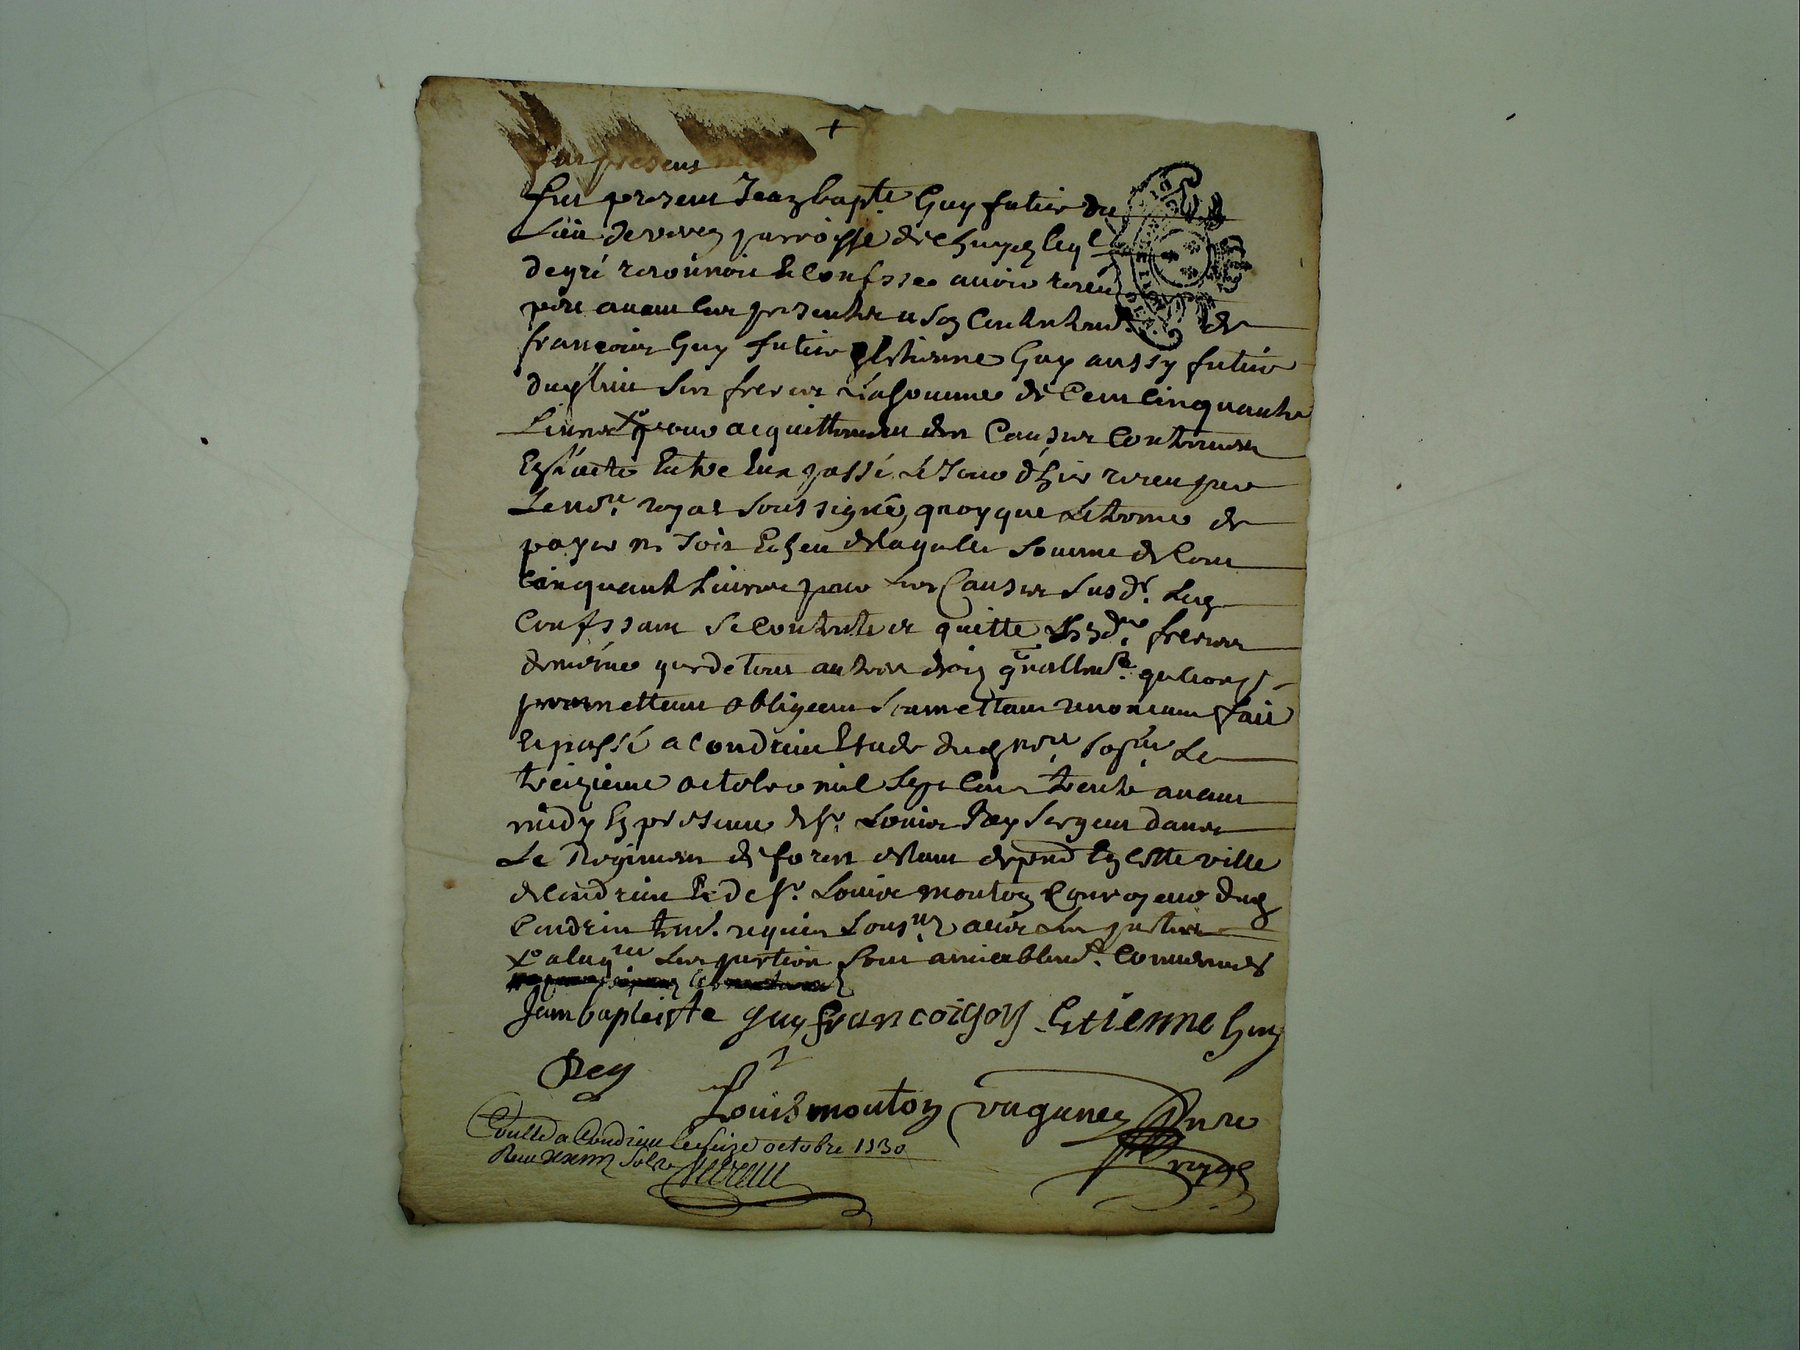 +
fut present
fut present Jean bapte Guy futier du
Lieu de verey parroisse de chuyes lequel
de gré reconnoit et confesse avoir receu
peu avant ces presentes a son contentemt. de
francois Guy futier et Estienne Guy aussy futier
dud. lieu ses freres la somme de Cent cinquante
Livres xo pour acquittement des causes contenues
En l'acte Entre Eux passé le Jour d'hier receu par
Le nore. royal soussigné, quoyque le terme de
payer ne soit Echeu de laquelle somme de Cent
cinquante Livres pour les Causes susd. Luy
confessant se contente et quitte Lesd. freres
de meme que de tous autres droits grallemt. quelconqs
promettant obligeant soumettant renoncant fait
Et passé a Condrieu Etude dud. nore. sousné. Le
treizieme octobre mil sept cent trente avant
midy En presence de sr. Louis Rey sergent dans
Le Regiment de forest estant En cette ville
de Condrieu Et de sr. Louis mouton dud.
Condrieu tem. requis sousnez avec les parties
xo a laqlle les parties sont amicablemt. convenues
Jean bapteiste guy francois goy Etienne huy
Rey
Louis mouton vaganey nore
royal
Conllé a Condrieu le seize octobre 1730
Receu sols